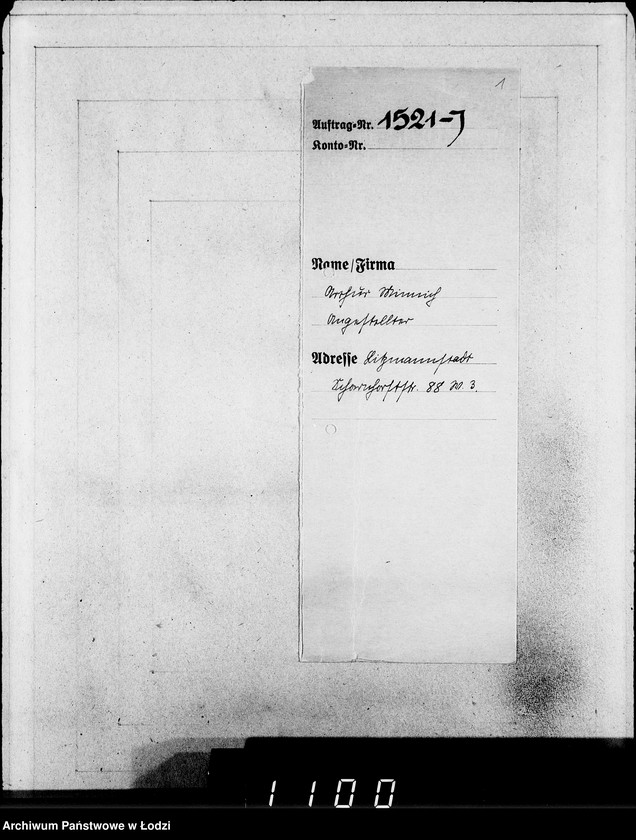 1
Auftrag=Nr. 1521-J
Konto=Nr.
Name/Firma
Arthur Minnich
Angestellter
Adresse Litzmannstadt
Scharnhorststr. 88 W. 3.
1100
Archiwum Państwowe w Łodzi